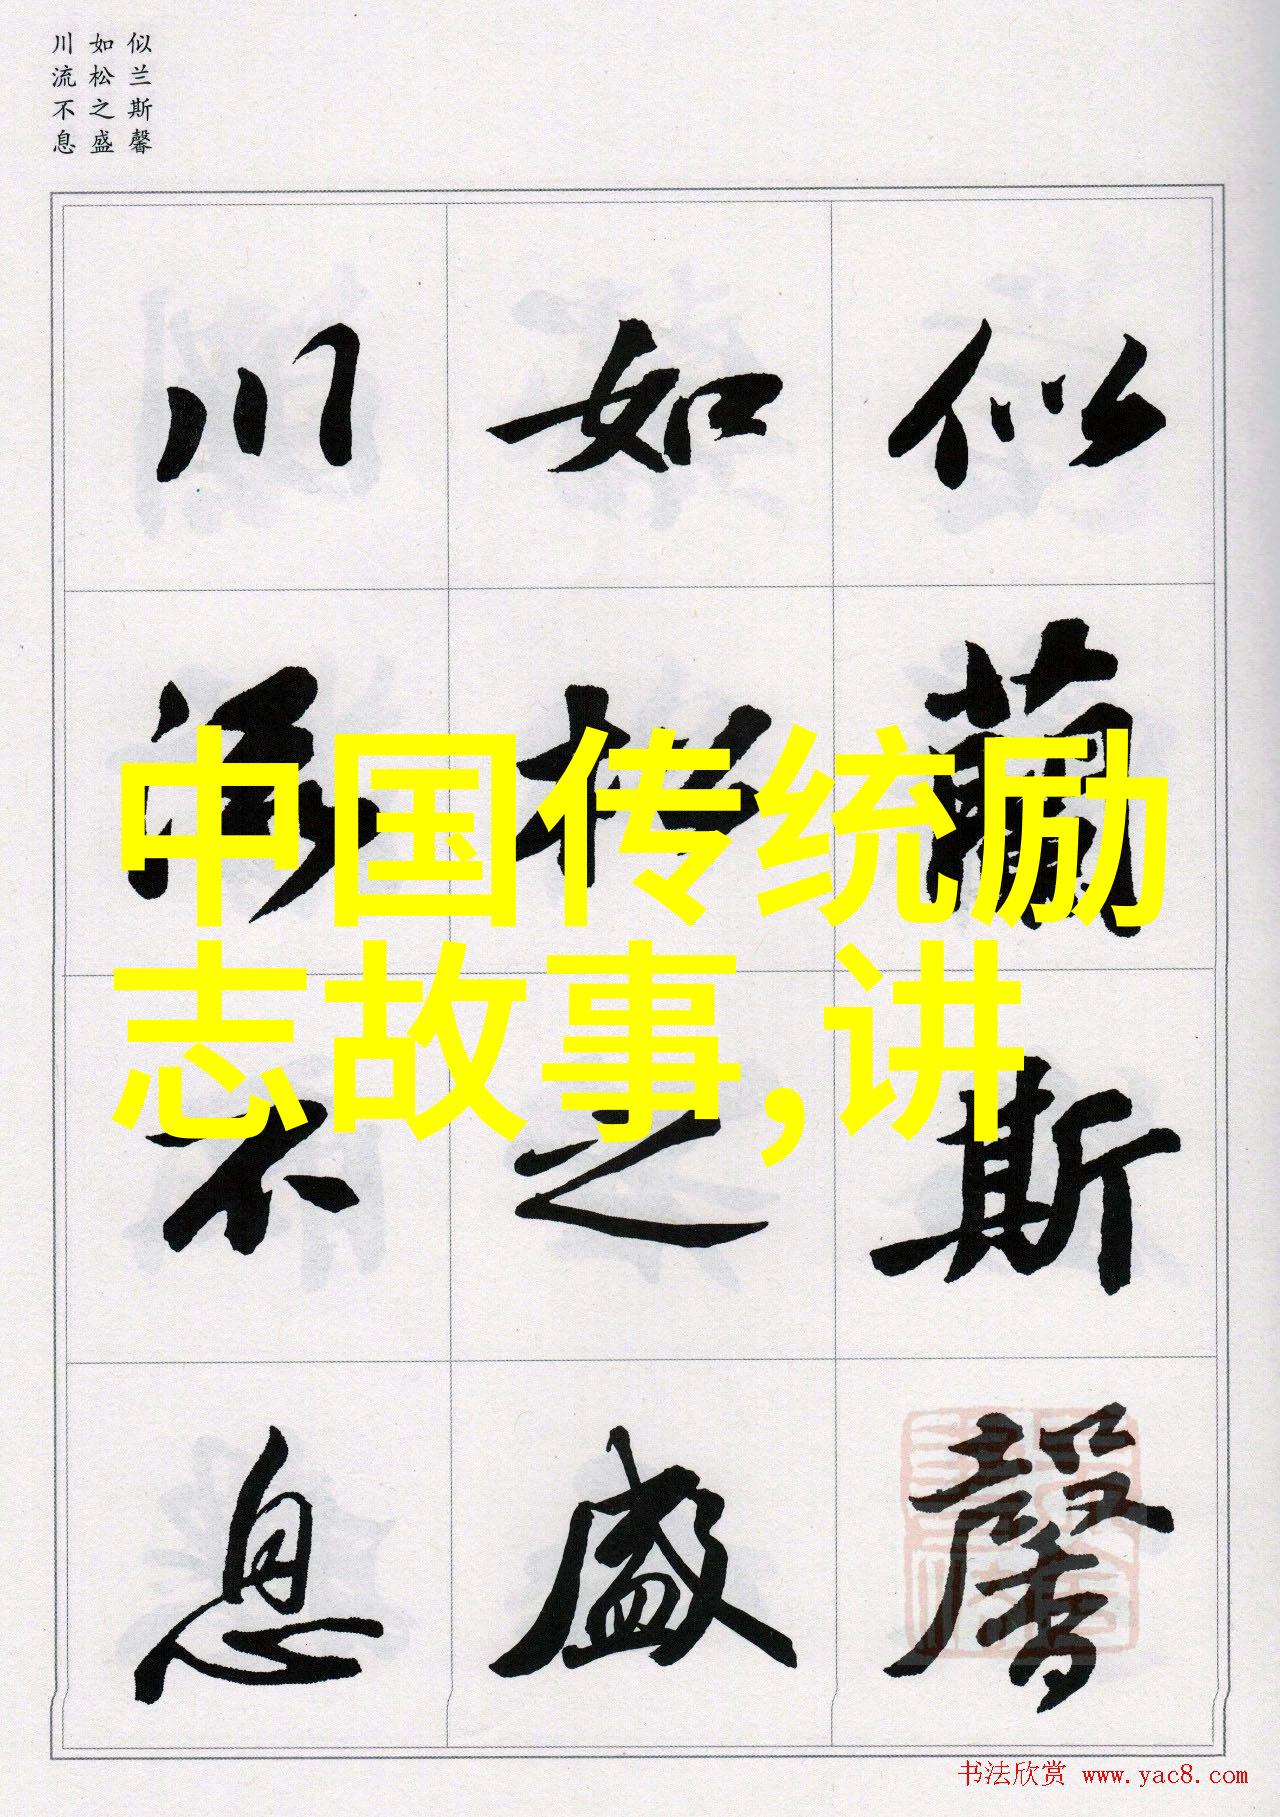 似兰斯馨
如松之盛
川流不息
似蘭斯馨
如松之盛
川流不息
中国传统励
志故事,讲
书法欣赏 www.yac8.com